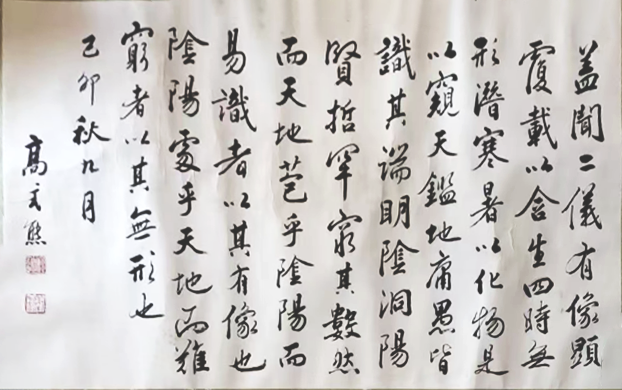 盖聞二儀有像顯
覆載以含生四時無
形潛寒暑以化物是
以窺天鑑地庸愚皆
識其端明陰洞陽
賢哲罕窮其數然
而天地苞乎陰陽而
易識者以其有像也
陰陽處乎天地而難
窮者以其無形也
己卯秋九月
高式熊